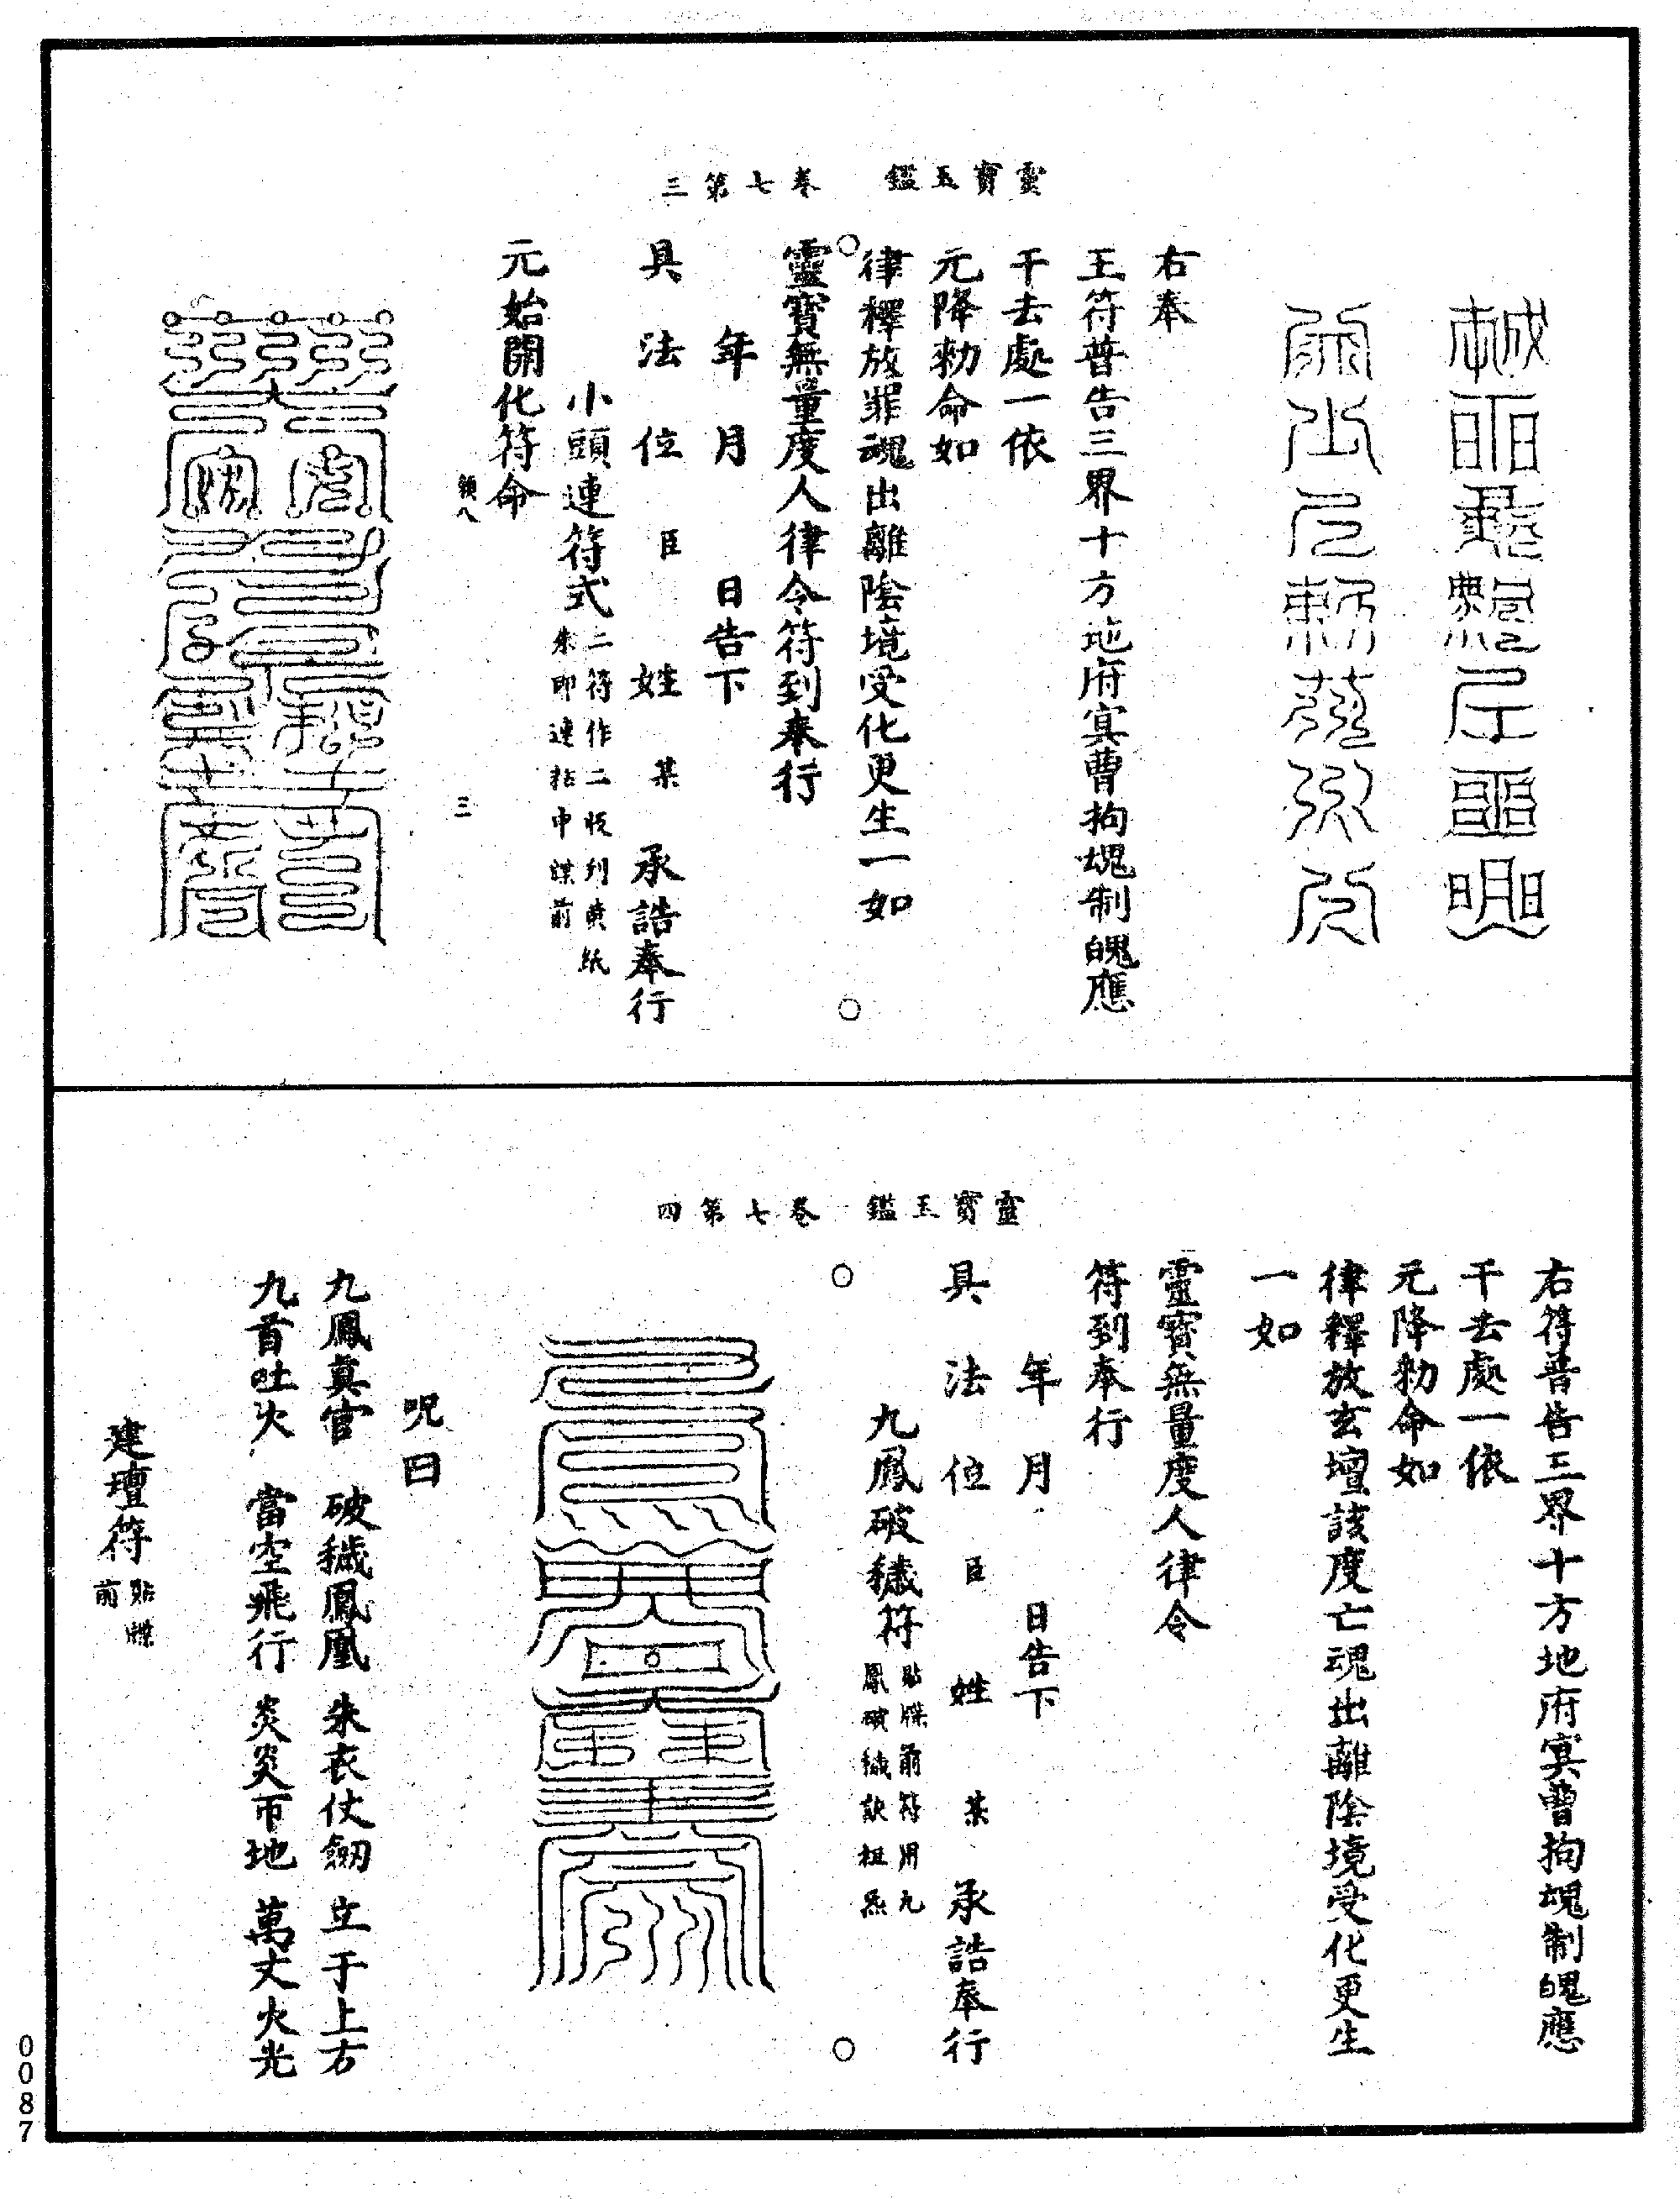 靈寶玉鑑　卷七第三
右奉
王符普告三界十方地府冥曹拘魂制魄應
干去處一依
元降勑命如
律釋放罪魂出離陰境受化更生一如
靈寶無量度人律令符到奉行
年　月　日告下
具法位　臣　姓　某　承誥奉行
小頭連符式
二符作二板刋黄紙
朱印連粘申牒前
元始開化符命
三
靈寶玉鑑　卷七第四
右符普告三界十方地府冥曹拘魂制魄應
干去處一依
元降勑命如
律釋放玄壇該度亡魂出離陰境受化更生
一如
靈寶無量度人律令
符到奉行
年　月　日告下
具法位　臣　姓　某　承誥奉行
九鳳破穢符
貼牒前符用九
鳳破穢訣祖炁
呪曰
九鳳真官　破穢鳳凰　朱衣仗劒　立于上方
九首吐火　當空飛行　炎炎帀地　萬丈火光
建壇符
貼牒
前
0087